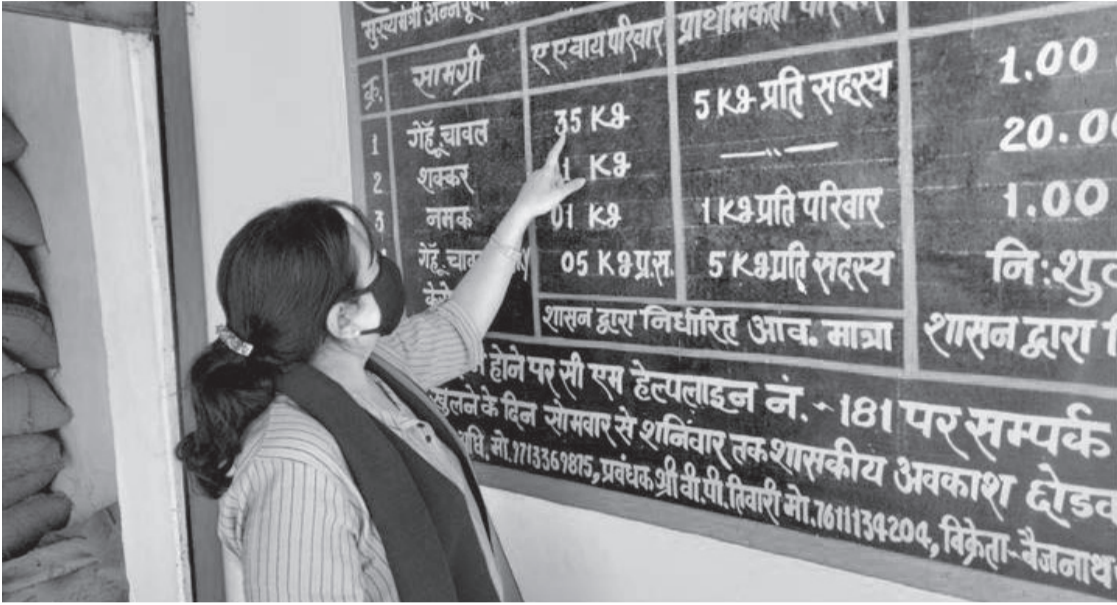 मुख्यमंत्री अन्नपूर्णा
क्र. सामग्री ए ए वाय परिवार प्राथमिकता परिवार
1 गेहूँ, चावल 35 Kg 5 Kg प्रति सदस्य 1.00
2 शक्कर 1 Kg —〃— 20.00
3 नमक 01 Kg 1 Kg प्रति परिवार 1.00
गेहूँ, चावल 05 Kg प्र.स. 5 Kg प्रति सदस्य नि:शुल्
शासन द्वारा निर्धारित आव. मात्रा शासन द्वारा
होने पर सी एम हेल्पलाइन नं. - 181 पर सम्पर्क
खुलने के दिन सोमवार से शनिवार तक शासकीय अवकाश छोडक
मो. 9713369815, प्रबंधक श्री वी.पी. तिवारी मो. 7611134204, विक्रेता - बैजनाथ